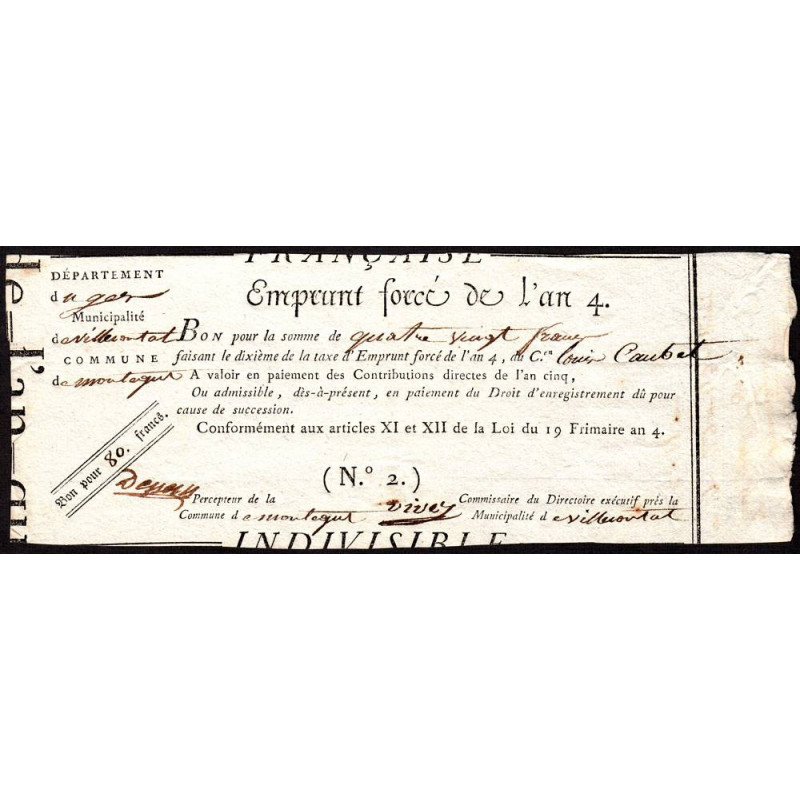 FRANÇAISE
Emprunt forcé de l'an 4.
DÉPARTEMENT
du gers
Municipalité
de villecontat
COMMUNE
de montegut
BON pour la somme de quatre vingt francs
faisant le dixième de la taxe d'Emprunt forcé de l'an 4, du C.en louis Caubet
A valoir en paiement des Contributions directes de l'an cinq,
Ou admissible, dès-à-présent, en paiement du Droit d'enregistrement dû pour
cause de succession.
Conformément aux articles XI et XII de la Loi du 19 Frimaire an 4.
Bon pour 80. francs.
(N.° 2.)
Percepteur de la
Commune de montegut
Commissaire du Directoire exécutif près la
Municipalité de villecontat
INDIVISIBLE